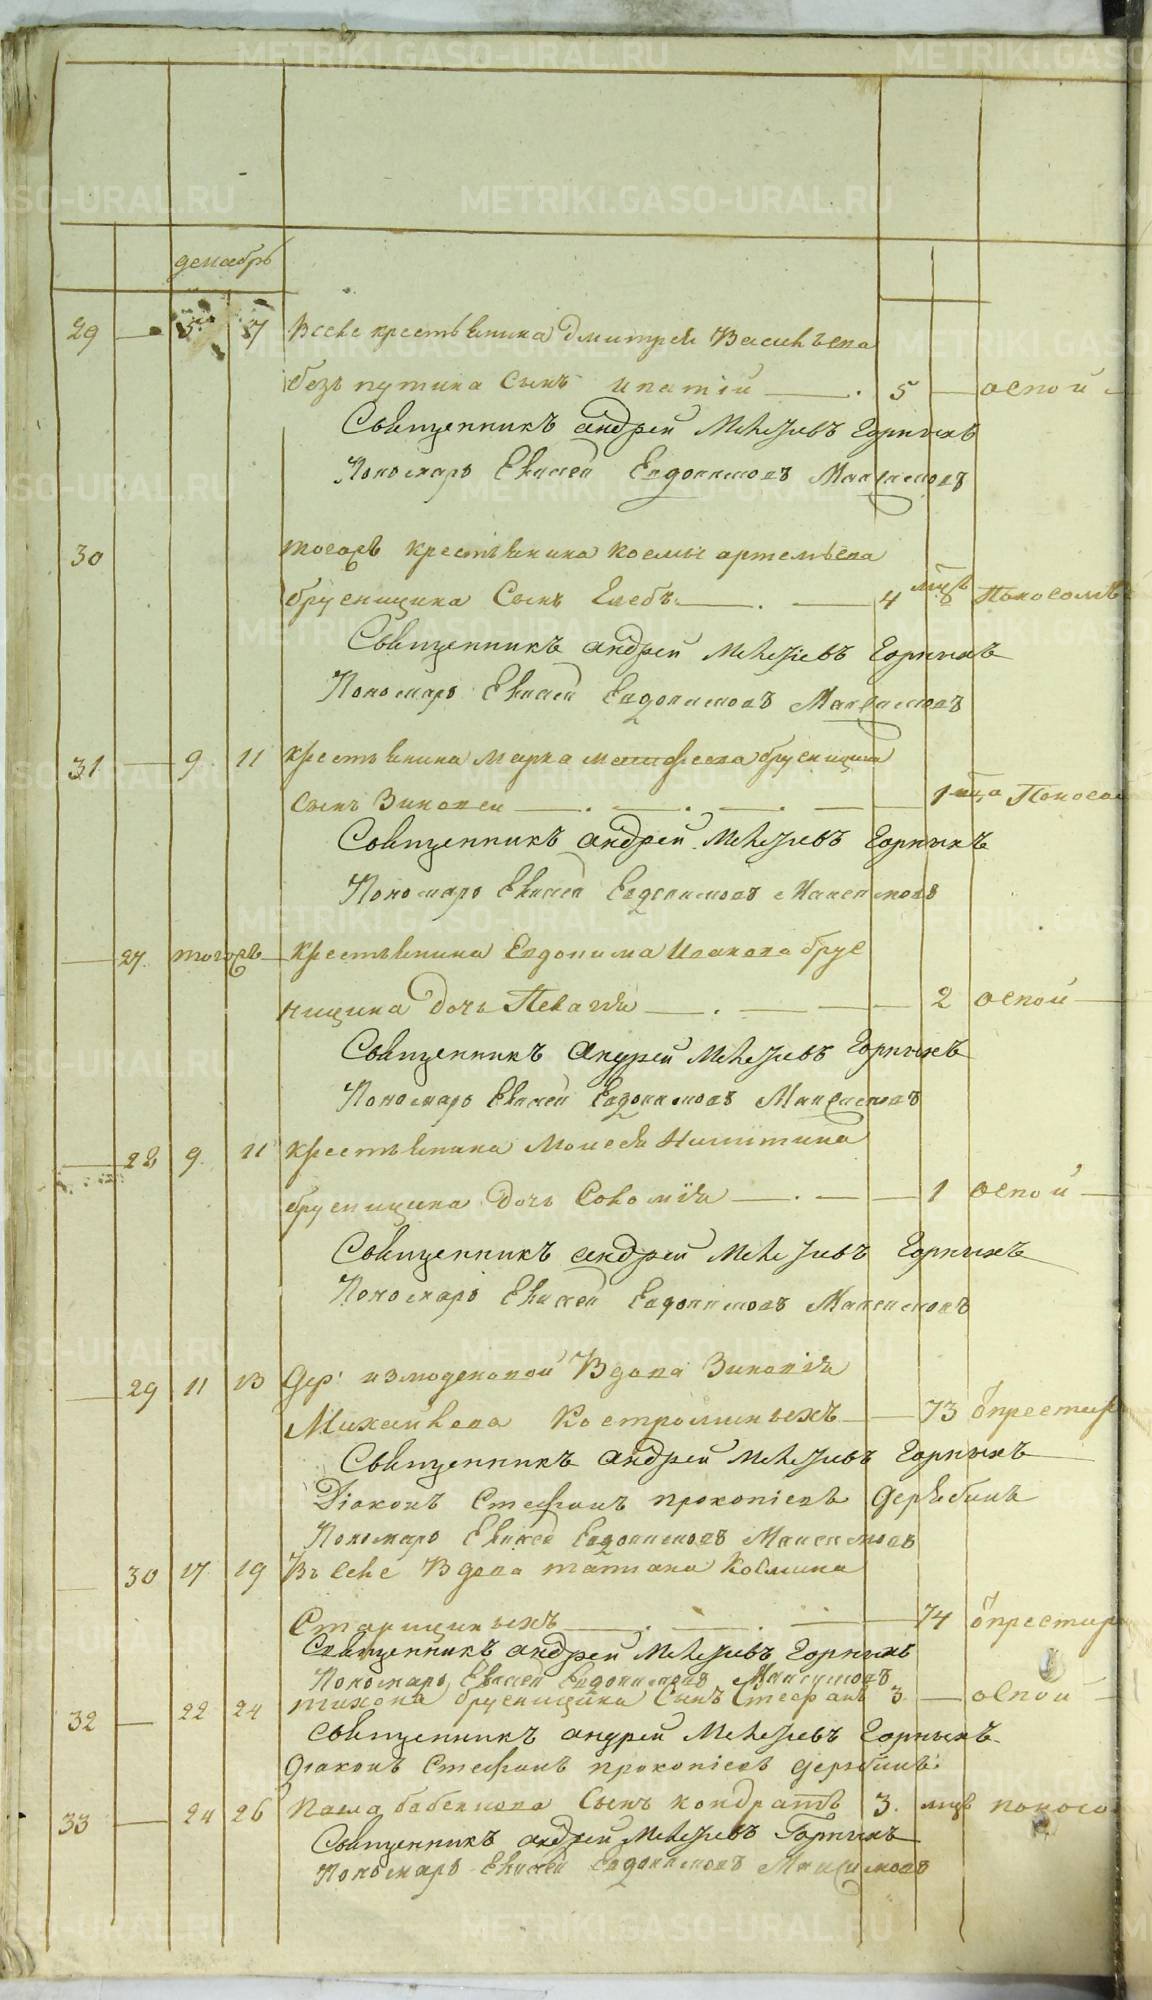 METRIKI.GASO-URAL.RU
декабрь
29 — 5 7 Всеle крестьянина Дмитрея Васильева
безпутина Сынъ ипатiй — 5 — оспой
Священникъ андрей Горныхъ
Пономарь Евдокимовъ Максимовъ
30 тогожъ крестьянина Космы артемьева
брусницина Сынъ Глебъ — 4 мцъ Поносомъ
Священникъ андрей Горныхъ
Пономарь Евдокимовъ Максимовъ
31 — 9 11 крестьянина марка брусницина
Сынъ Зиновей — 1 мца Поносо
Священникъ андрей Горныхъ
Пономарь Евдокимовъ Максимовъ
— 27 тогожъ — крестьянина Евдокима Исакова брус
ницина Дочь Пелагiя — 2 оспой —
Священникъ андрей Горныхъ
Пономарь Евдокимовъ Максимовъ
— 28 9 11 крестьянина Моисея Никитина
брусницина Дочь Соломiя — 1 оспой —
Священникъ андрей Горныхъ
Пономарь Евдокимовъ Максимовъ
— 29 11 13 Дер: измоденовой Вдова Зиновiя
Михайлова Костроминыхъ — 73 опрестар
Священникъ андрей Горныхъ
Дiаконъ Стефанъ прокопiевъ Дерябинъ
Пономарь Евдокимовъ Максимовъ
— 30 17 19 Въ Селе Вдова татiана Космина
Старициныхъ — 74 опрестар
Священникъ андрей Горныхъ
Пономарь Евдокимовъ Максимовъ
32 — 22 24 тихона брусницина Сынъ Стефанъ 3 — оспой —
Священникъ андрей Горныхъ
Дiаконъ Стефанъ прокопiевъ дерябинъ
33 — 24 26 Павла бабенкова Сынъ кондратъ 3. мцъ поносо
Священникъ андрей Горныхъ
Пономарь Евдокимовъ Максимовъ